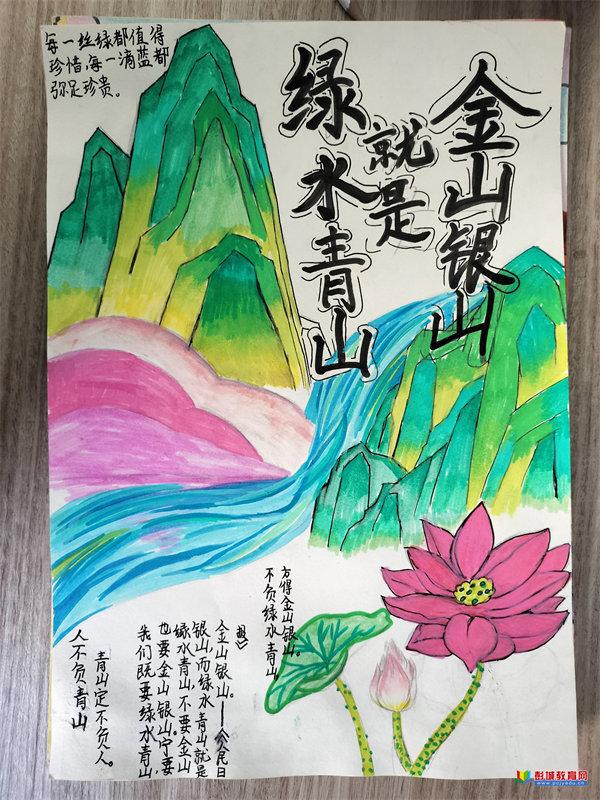 每一丝绿都值得
珍惜,每一滴蓝都
弥足珍贵。
绿水青山
就是
金山银山
不负绿水青山
方得金山银山。
我们既要绿水青山,
也要金山银山。宁要
绿水青山,不要金山
银山,而绿水青山就是
金山银山。——《人民日
报》
人不负青山
青山定不负人。
彭城教育网